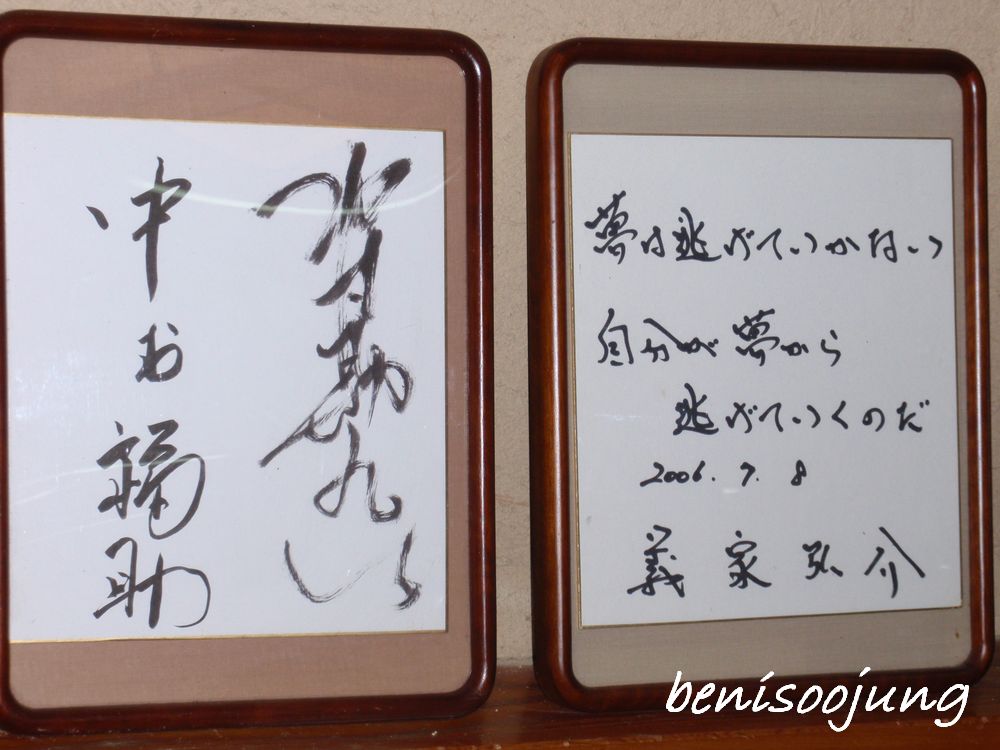 中村福助
夢は逃げていかない
自分が夢から
逃げていくのだ
2006.7.8
義家弘介
benisoojung